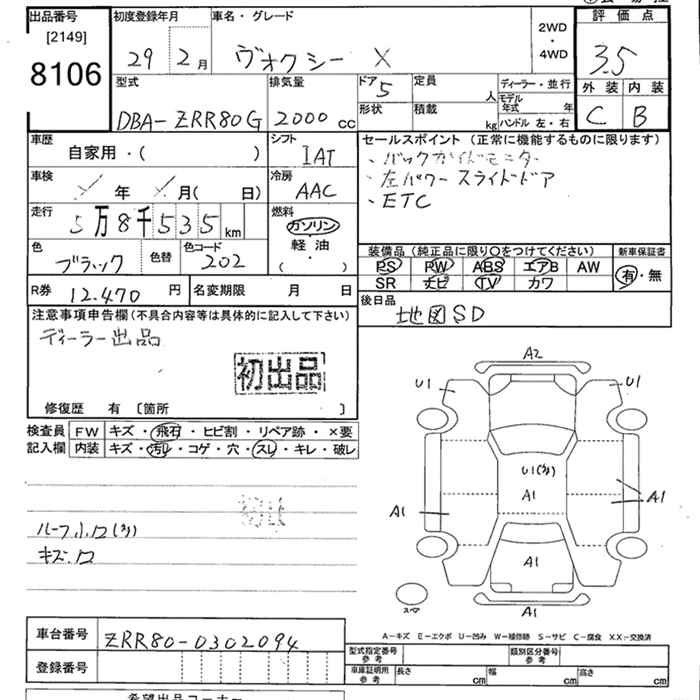 出品番号 初度登録年月 車名・グレード 2WD・4WD 評価点
[2149]
8106 29 2月 ヴォクシー X 3.5
型式 排気量 ドア 5 定員 人 ディーラー・並行 外装 内装
DBA-ZRR80G 2000 CC 形状 積載 kg モデル年式 年 ハンドル 左・右 C B
車歴 自家用・( ) シフト IAT セールスポイント (正常に機能するものに限ります)
・バックガイドモニター
車検 年 月( 日) 冷房 AAC ・左パワースライドドア
・ETC
走行 5万8千535km 燃料 ガソリン 軽油 ( ・ )
色 ブラック 色替 色コード 202
装備品 (純正品に限り〇をつけてください) 新車保証書
PS PW ABS エアB AW 有・無
SR ナビ TV カワ
R券 12.470 円 名変期限 月 日
後日品 地図SD
注意事項申告欄(不具合内容等は具体的に記入して下さい)
ディーラー出品
初出品
修復歴 有 [箇所 ]
検査員 FW キズ・飛石・ヒビ割・リペア跡・×要
記入欄 内装 キズ・汚レ・コゲ・穴・スレ・キレ・破レ
ルーフ
キズ
A2
U1 U1
U1
A1
A1 A1
A1
A1
スペア
A-キズ E-エクボ U-凹み W-補修跡 S-サビ C-腐食 XX-交換済
車台番号 ZRR80-0302094
登録番号
型式指定番号 参考 類別区分番号 参考
車庫証明用 参考 長さ cm 幅 cm 高さ cm
希望出品コーナー